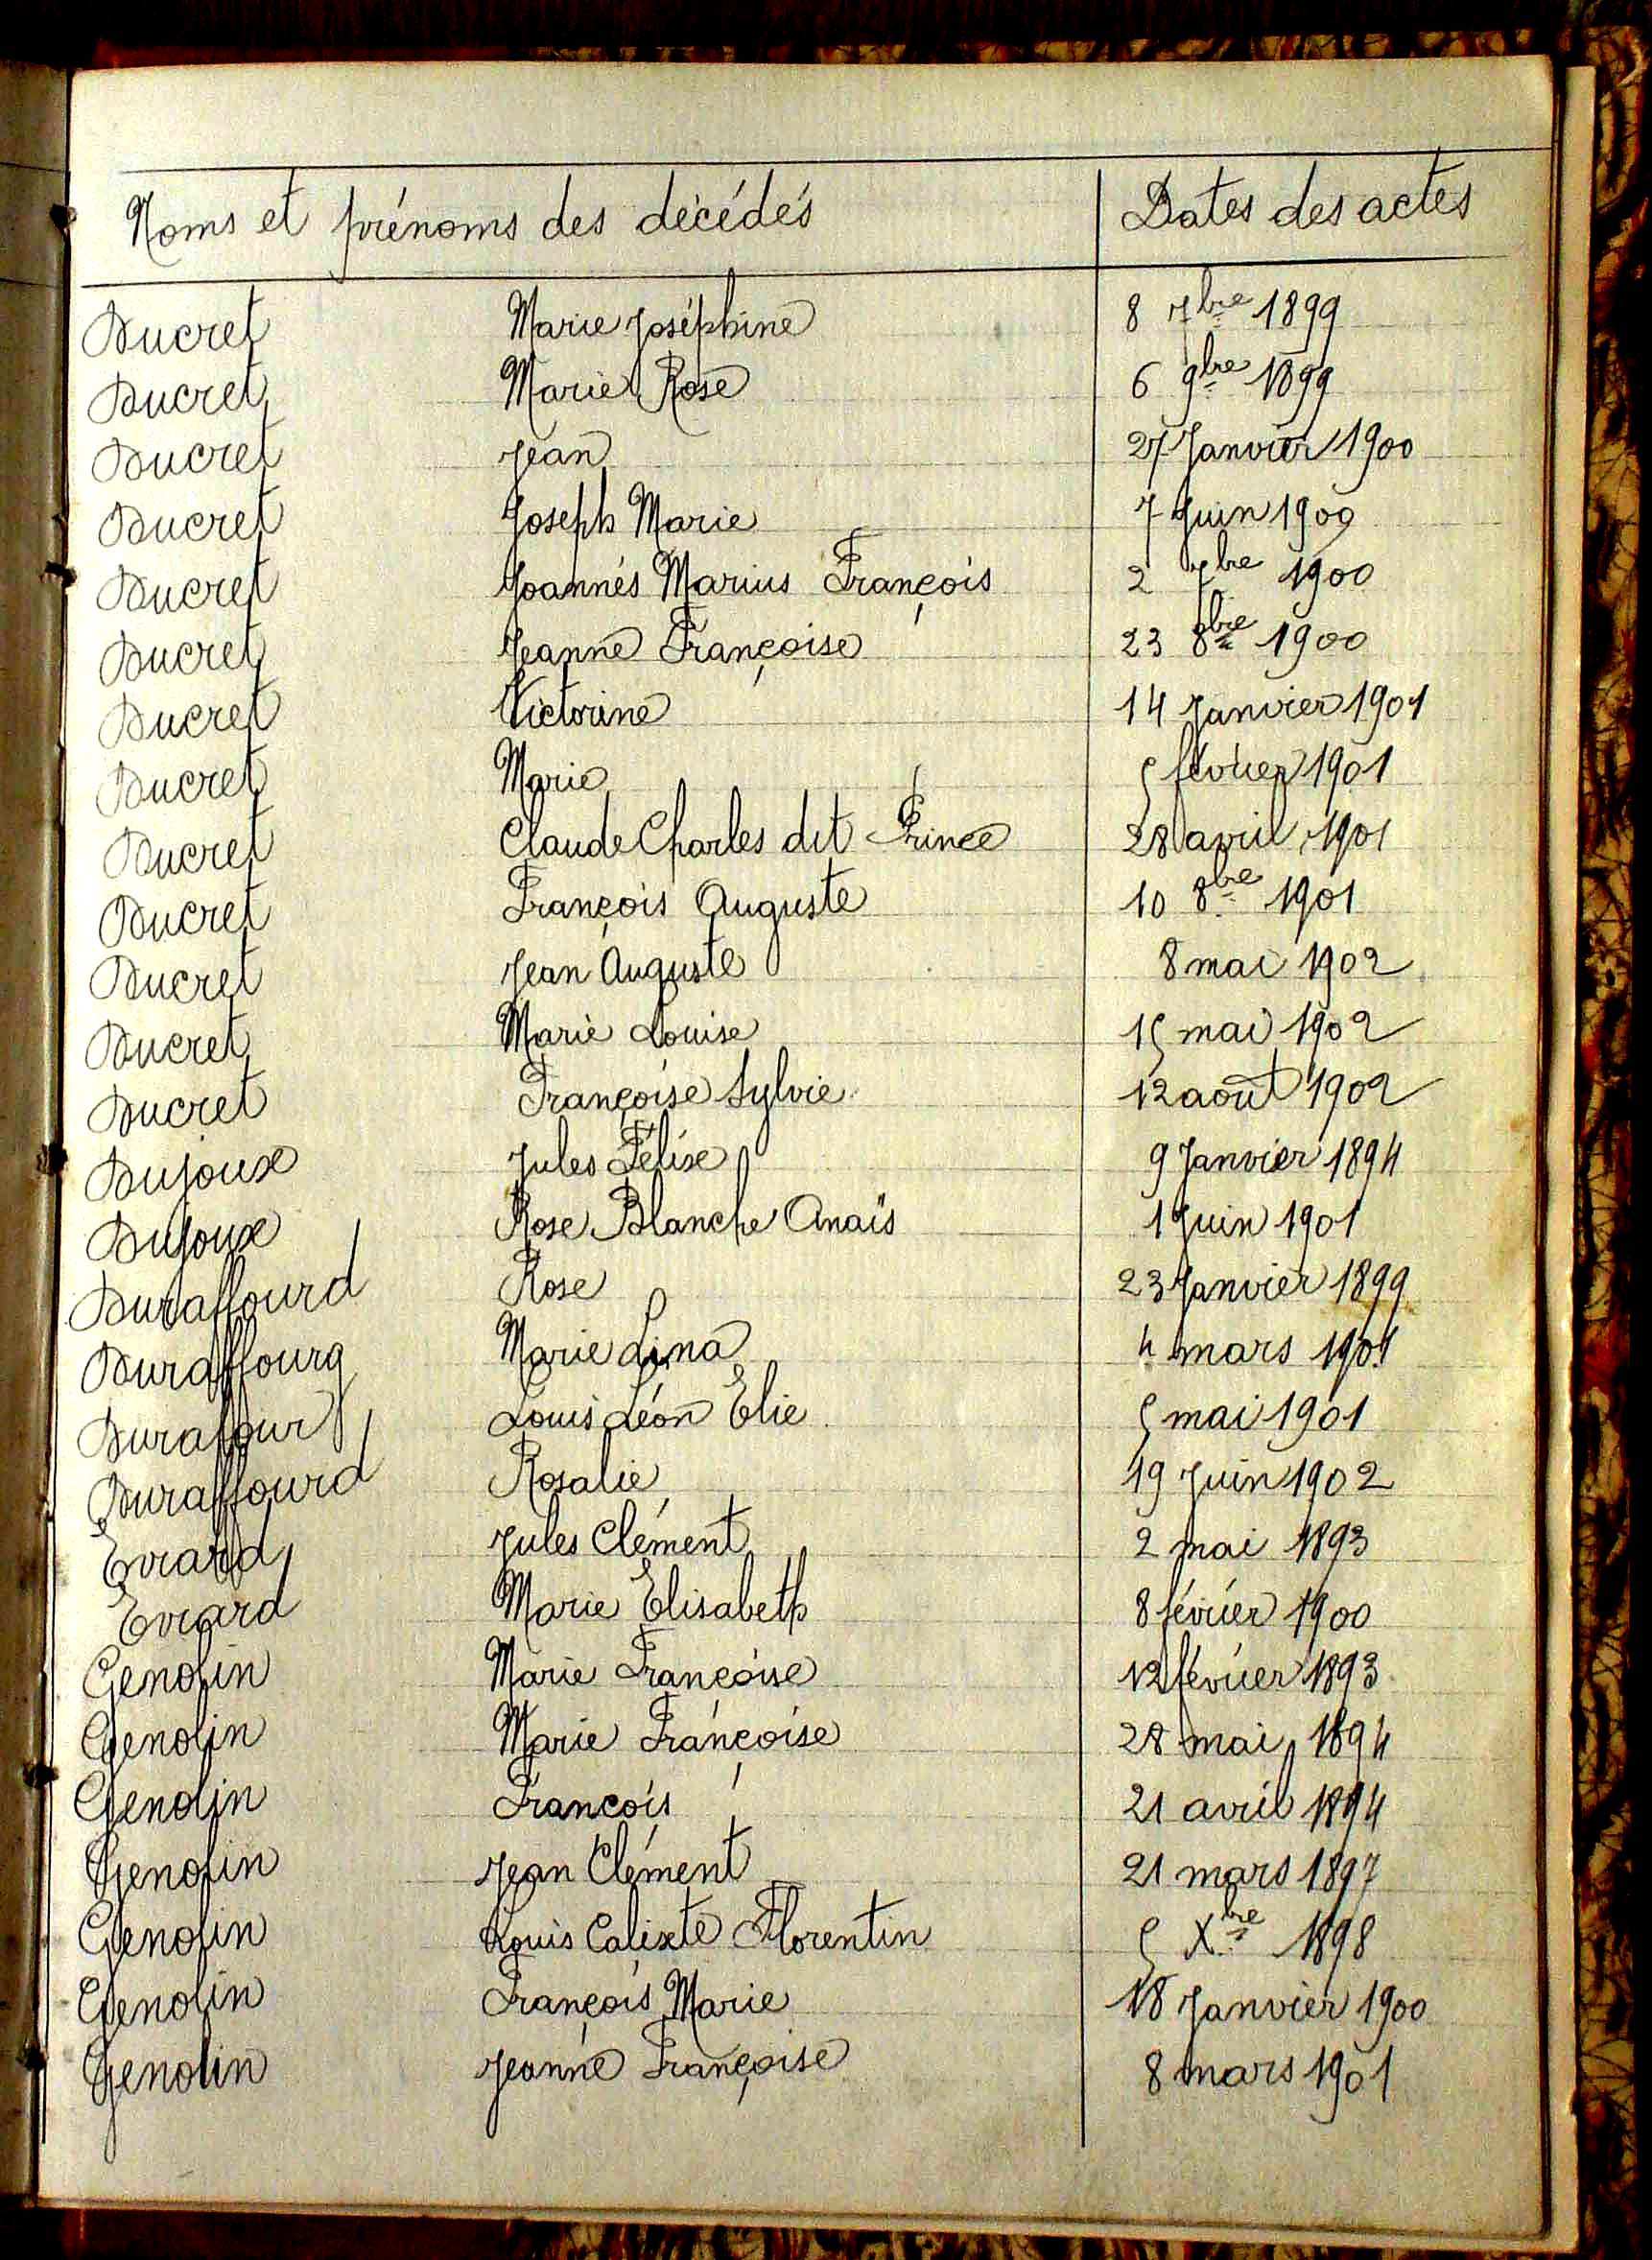 Noms et prénoms des décédés Dates des actes
Ducret Marie Joséphine 8 7bre 1899
Ducret Marie Rose 6 9bre 1899
Ducret Jean 27 Janvier 1900
Ducret Joseph Marie 7 Juin 1900
Ducret Joannés Marius François 2 7bre 1900
Ducret Jeanne Françoise 23 8bre 1900
Ducret Victorine 14 Janvier 1901
Ducret Marie 5 février 1901
Ducret Claude Charles dit Prince 28 avril 1901
Ducret François Auguste 10 8bre 1901
Ducret Jean Auguste 8 mai 1902
Ducret Marie Louise 15 mai 1902
Ducret Françoise Sylvie 12 août 1902
Dujoux Jules Félix 9 Janvier 1894
Dujoux Rose Blanche Anaïs 1 Juin 1901
Duraffourd Rose 23 Janvier 1899
Duraffourg Marie Lina 4 mars 1901
Durafour Louis Léon Elie 5 mai 1901
Duraffourd Rosalie 19 Juin 1902
Evrard Jules Clément 2 mai 1893
Evrard Marie Elisabeth 8 février 1900
Genolin Marie Françoise 12 février 1893
Genolin Marie Françoise 28 mai 1894
Genolin François 21 avril 1894
Genolin Jean Clément 21 mars 1897
Genolin Louis Calixte Florentin 5 Xbre 1898
Genolin François Marie 18 Janvier 1900
Genolin Jeanne Françoise 8 mars 1901